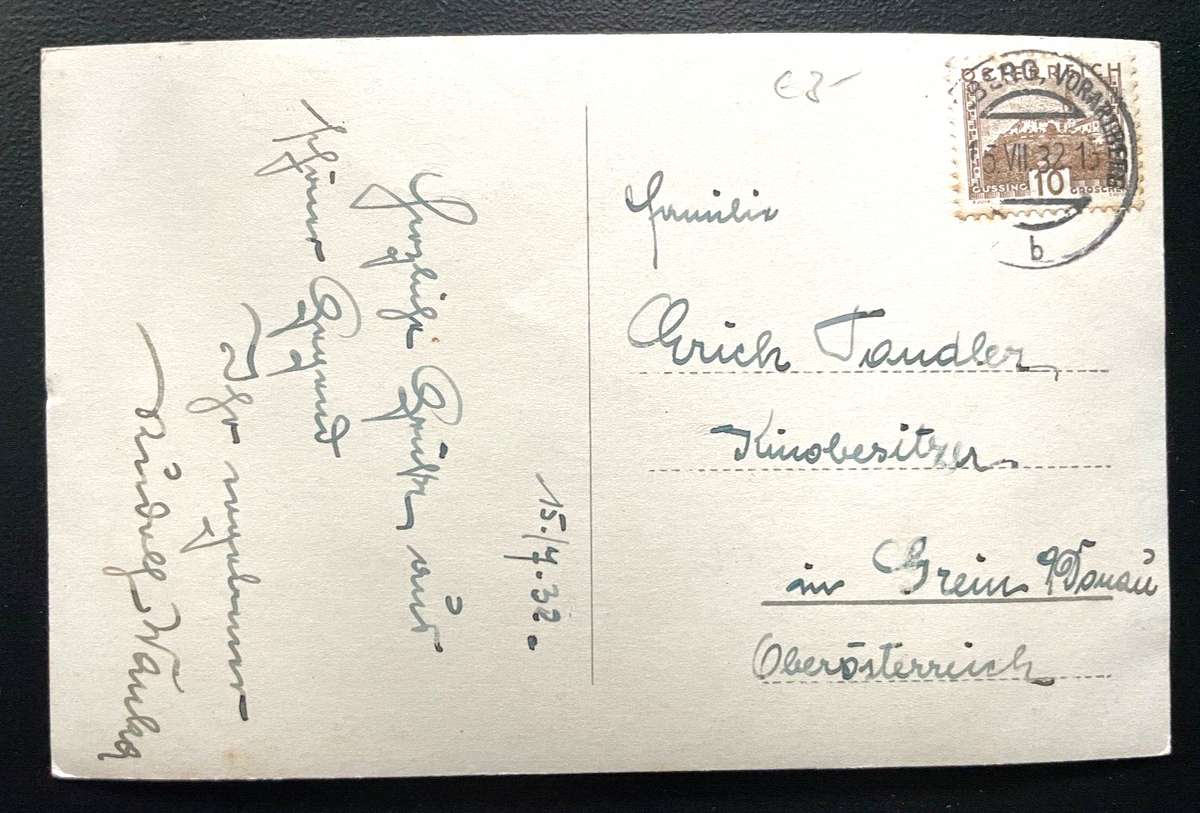 € 3-
OESTERREICH
BERG, VORARLBERG
5.VII.32 15
GÜSSING 10 GROSCHEN
b
Familie
Erich Tandler,
Kinobesitzer
in Grein a/Donau
Oberösterreich
15./7.32.
Herzliche Grüße aus
schöner Gegend
Ihr ergebener
Rudolf